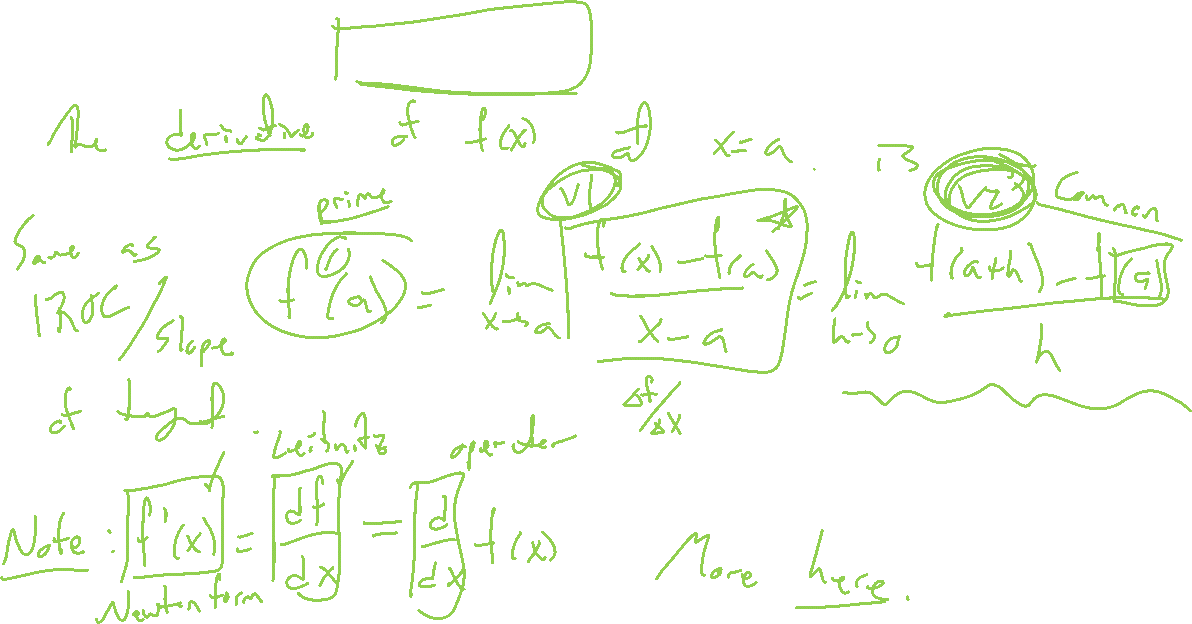 The derivative of f(x) at x=a. is
prime V1 V2 Common
Same as IROC/slope of tangent
f'(a) = lim x→a f(x)-f(a) / x-a = lim h→0 f(a+h)-f(a) / h
Δf/ΔX
Leibnitz operator
Note: f'(x) = df/dx = d/dx f(x)
Newton form
More here.